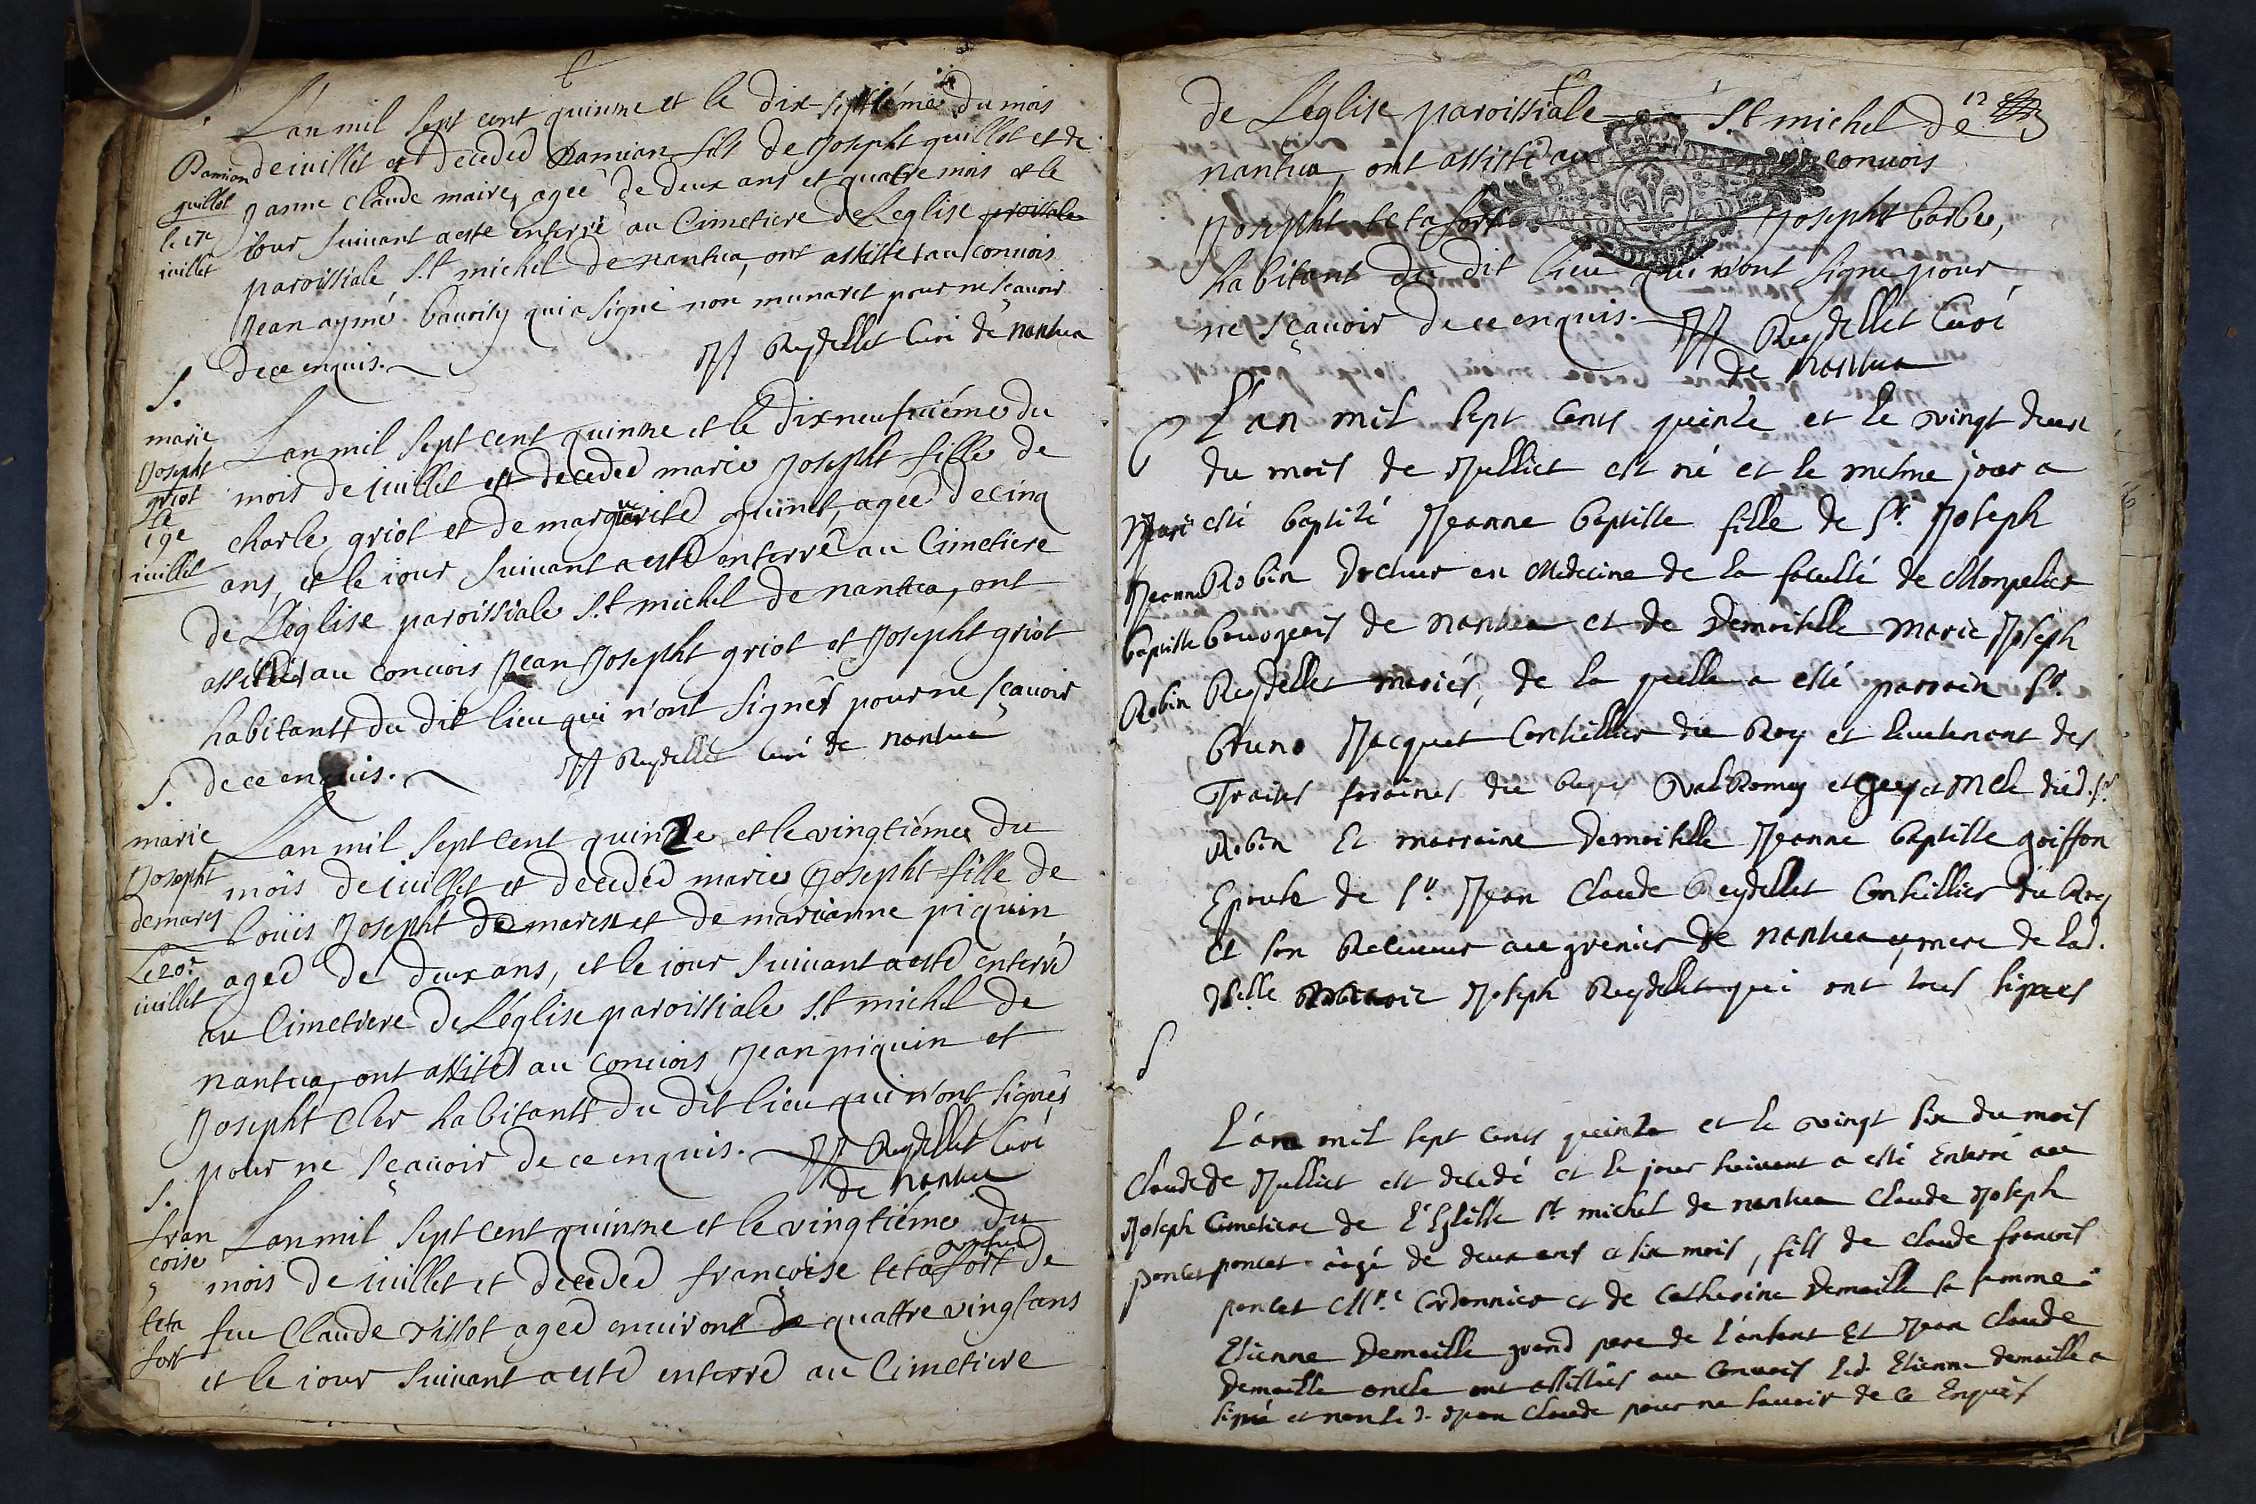 Lan mil sept cent quinze et le dix septiéme du mois
Damian
guillot
le 17e
iuillet
de iuillet est decedeé Damian fils de Josepht guillot et de
Janne Claude maire, ageé de deux ans et quatre mois et le
iour suivant a esté enterré au Cimetiere de Leglise
paroissiale S.t michel de nantua, ont assistés au conuois
Jean aymé qui a signé non munaret pour ne sçauoir
de ce enquis.
JJ Reydellet Curé de nantua
S.
marie
Josepht
griot
le
19e
iuillet
Lan mil sept cent quinze et le dixneufuiéme du
mois de iuillet est decedeé marie Josepht fille de
charle griot et de marguerite guinet, ageé de cinq
ans, et le iour suiuant a esté enterré au Cimetiere
de L'eglise paroissiale S.t michel de nantua, ont
assistés au conuois Jean Josepht griot et Josepht griot
habitants du dit lieu qui n'ont signés pour ne sçauoir
de ce enquis.
JJ Reydellet Curé de nantua
S.
marie
Josepht
demarez
Le 20e
iuillet
Lan mil sept cent quinze et le vingtiéme du
mois de iuillet et decedeé marie Josepht fille de
Loüis Josepht de marez et de marianne piquin
ageé de deux ans, et le iour suiuant a esté enterré
au Cimetiere de L'eglise paroissiale S.t michel de
nantua, ont assités au conuois Jean piquin et
Josepht Cler habitants du dit lieu qui n'ont signés
pour ne sçauoir de ce enquis.
JJ Reydellet Curé
de nantua
S.
fran
coise
teta
fort
Lan mil sept cent quinze et le vingtiéme du
mois de iuillet et decedeé françoise tetafort de
feu Claude vissot ageé enuiront de quattre vingt ans
et le iour suiuant a esté enterré au Cimetiere
12
de L'eglise paroissiale S.t michel de
nantua, ont assisté au conuois
Josepht tetafort Josepht barbe,
habitant du dit lieu qui n'ont signé pour
ne sçauoir de ce enquis.
JJ Reydellet Curé
de nantua
Jeanne
baptiste
Robin
L'an mil sept cents quinze et le vingt deux
du mois de Julliet est né et le mesme jour a
esté baptisé Jeanne baptiste fille de Sr. Joseph
Robin Docteur en Medecine de la faculté de Monpelier
bourgeois de nantua et de Demoiselle marie Joseph
Reydellet mariés, de la quelle a esté parrain Sr.
bruno Jacquet Conseillier du Roy et lieutenant des
Traites foraines du bugey ValRomey et gex et oncle dud. Sr
Robin Et marraine Demoiselle Jeanne baptiste goiffon
Epouse de Sr. Jean Claude Reydellet Conseillier du Roy
et son Receueur au grenier de nantua mere de lad.
Dselle Joseph Reydellet qui ont tous signés
S
Claude
Joseph
poncet
L'an mil sept cents quinze et le vingt six du mois
de Julliet est decedé et le jour suiuant a esté Enterré au
Cimetiere de l'Eglisse St michel de nantua Claude Joseph
poncet aagé de deux ans et six mois, fils de Claude francois
poncet Mr.e Cordonnier et de Catherine Demaille sa femme
Etienne Demaille grand pere de l'enfant Et Jean Claude
Demaille oncle ont assistés au Conuois led. Etienne demaille a
signé et non led. Jean Claude pour ne sauoir de ce Enquis